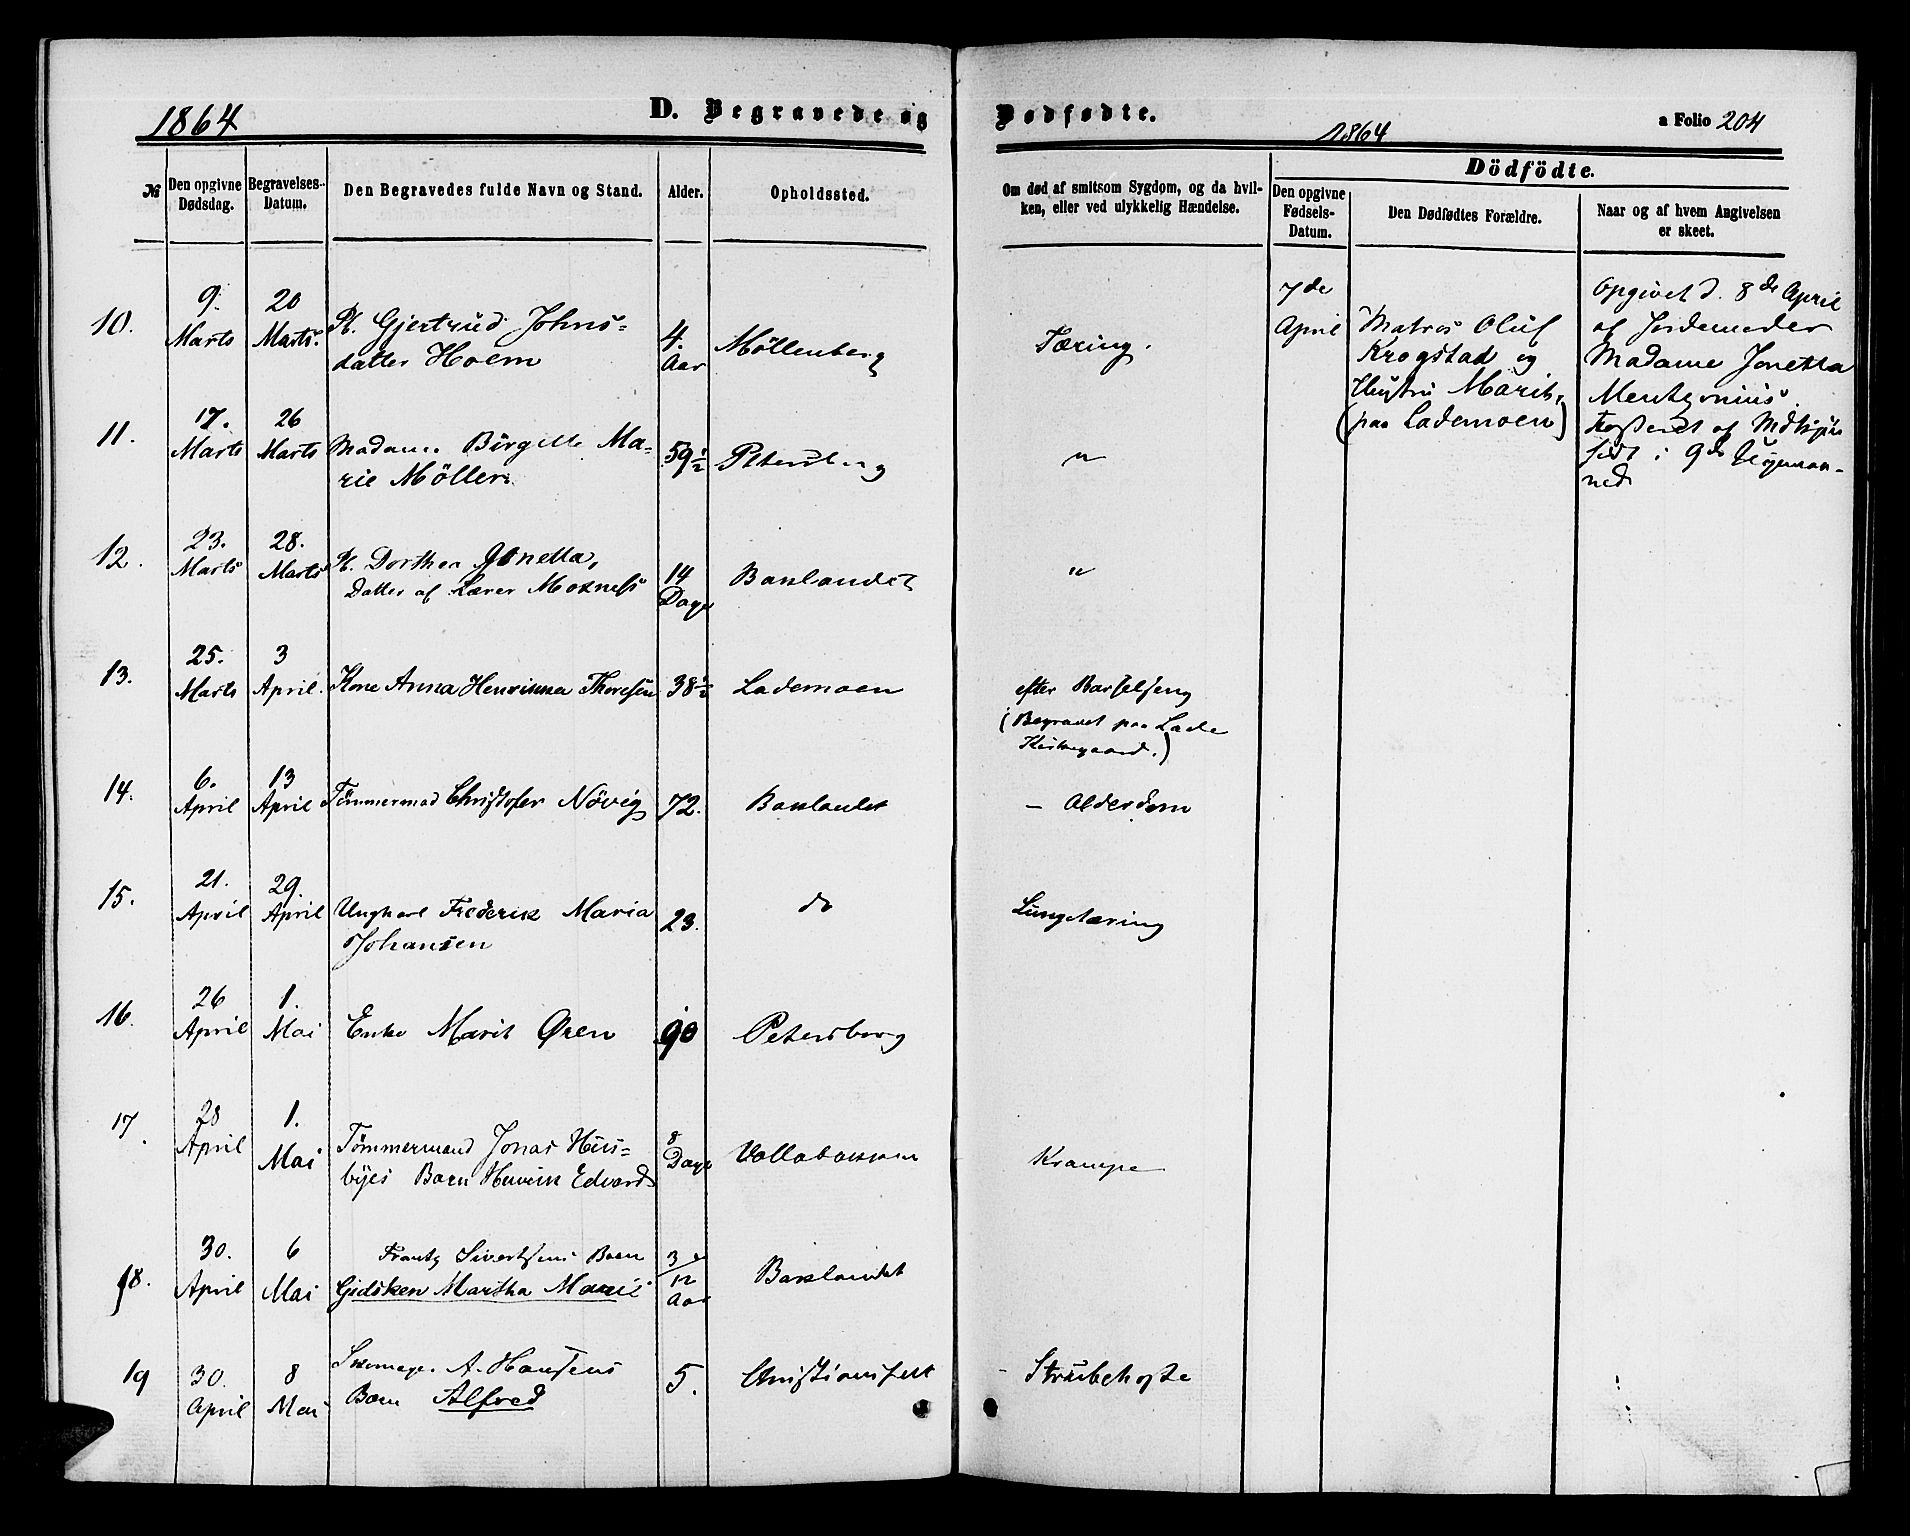 1864
D. Begravede og Dødfødte.
1864
a Folio 204
№
Den opgivne Dødsdag.
Begravelses-Datum.
Den Begravedes fulde Navn og Stand.
Alder.
Opholdssted.
Om død af smitsom Sygdom, og da hvil-
ken, eller ved ulykkelig Hændelse.
Dödfödte.
Den opgivne Fødsels-Datum.
Den Dødfødtes Forældre.
Naar og af hvem Angivelsen er skeet.
10.
9. Marts
20 Marts.
P. Gjertrud Johns-
datter Hoem
4. Aar
Möllenberg
Tæring.
7de April
Matros Oluf
Krogstad og
Hustru Marit,
(paa Lademoen)
Opgivet d. 8de April
af Jordemoder
Madame Jonetta
født i 9de
ned
11.
17. Marts
26 Marts
Madame Birgitte Ma-
rie Möller
59½
Petersberg
"
12.
23. Marts
28. Marts
P. Dorthea Jonetta,
Datter af Lærer Moxness
14 Dage
Baklandet
"
13.
25. Marts
3 April.
Kone Anna Henrikka Thoresen
38½
Lademoen
efter Barselseng
(Begravet paa Lade
Kirkegaard.)
14.
6. April
13 April
Tömmermad Christofer Növig
72.
Baklandet
- Alderdom
15.
21. April
29. April
Ungkarl Frederik Maria
Johansen
23.
do
Lungetæring
16.
26 April
1. Mai
Enke Marit Øren
90
Petersborg
17.
28 April
1. Mai
Tömmermand Jonas Hus-
byes Barn Henrik Edvard
8 Dage
Vollabakken
Krampe
18.
30. April
6 Mai
Frantz Sivertsens Barn
Gidsken Martha Marie
3/12 Aar
Baklandet
19
30. April
8 Mai
Skomager A. Hansens
Barn Alfred
5.
Christiansfelt
- Strubehoste